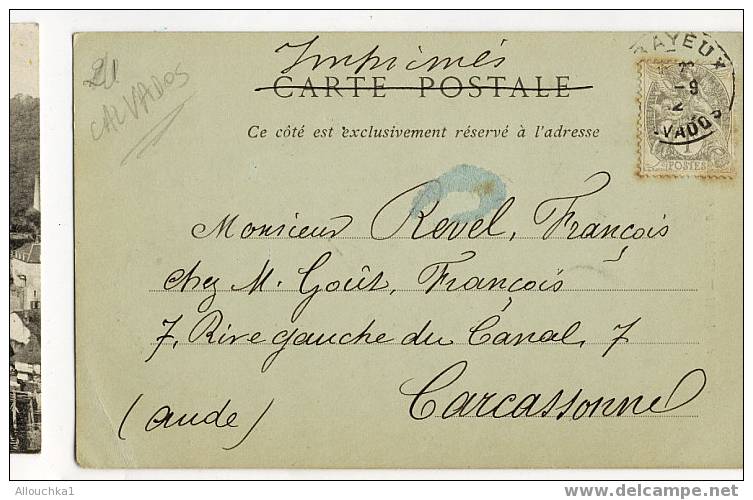 Imprimés
CARTE POSTALE
Ce côté est exclusivement réservé à l'adresse
CALVADOS
BAYEUX
-9
2
VADOS
1
POSTES
Monsieur Revel, François
chez M. Goût, François
7, Rive gauche du Canal, 7
Carcassonne
(Aude)
Allouchka1
delcampe.net